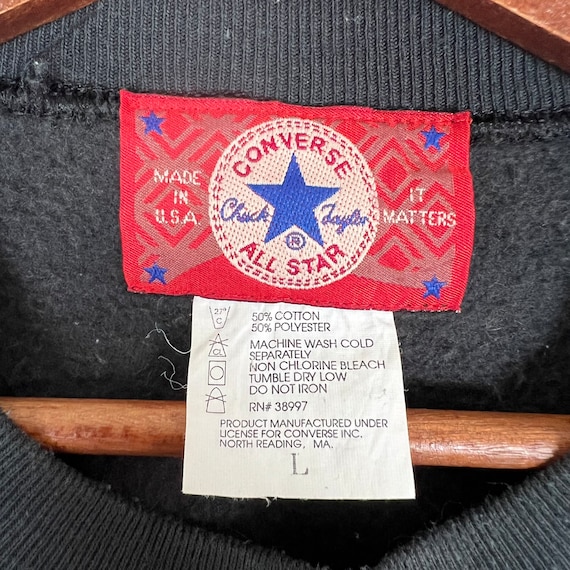 CONVERSE
MADE
IN
U.S.A.
Chuck Taylor
®
IT
MATTERS
ALL STAR
27°
C
CL
50% COTTON
50% POLYESTER
MACHINE WASH COLD
SEPARATELY
NON CHLORINE BLEACH
TUMBLE DRY LOW
DO NOT IRON
RN# 38997
PRODUCT MANUFACTURED UNDER
LICENSE FOR CONVERSE INC.
NORTH READING, MA.
L